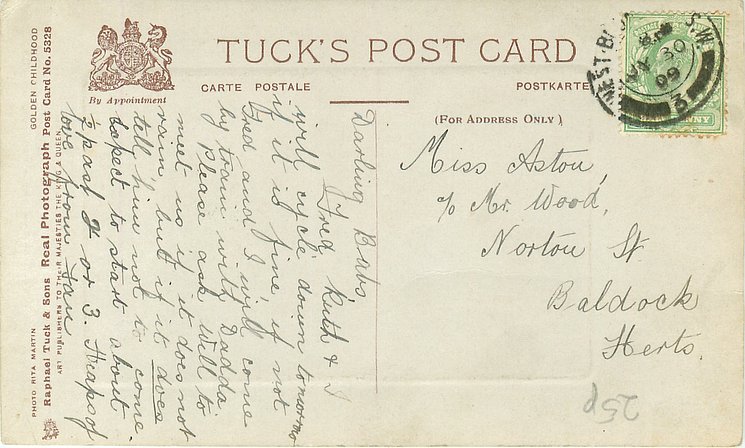 TUCK'S POST CARD
By Appointment
CARTE POSTALE
POSTKARTE
(FOR ADDRESS ONLY)
GOLDEN CHILDHOOD
Raphael Tuck & Sons Real Photograph Post Card No. 5328
ART PUBLISHERS TO THEIR MAJESTIES THE KING & QUEEN
PHOTO RITA MARTIN
Darling Babs
Fred, Ruth & I
will cycle down tomorrow
if it is fine, if not
Fred and I will come
by train with Dadda.
Please ask Will to
meet us if it does not
rain but if it does
tell him not to come.
expect to start about
½ past 2 or 3. Heaps of
love from
Miss Aston,
c/o Mr. Wood,
Norton St
Baldock
Herts.
S.W.
30
09
3
PENNY
25p